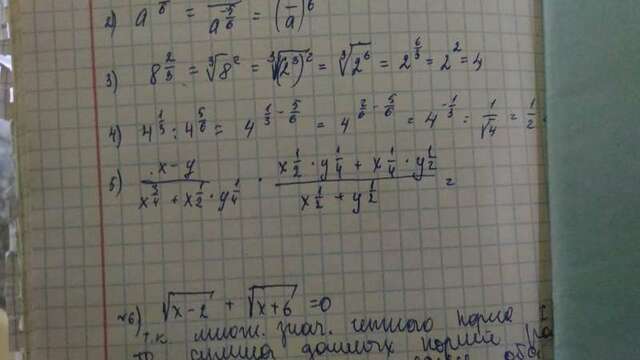 2) a = 1/a^(-5/6) = (1/a)^6
3) 8^(2/3) = ∛8² = ∛(2³)² = ∛2⁶ = 2^(6/3) = 2² = 4
4) 4^(1/3) : 4^(5/6) = 4^(1/3 - 5/6) = 4^(2/6 - 5/6) = 4^(-1/3) = 1/√4 = 1/2
5) (x-y)/(x^(3/4) + x^(1/2) · y^(1/4)) · (x^(1/2) · y^(1/4) + x^(1/4) · y^(1/2))/(x^(1/2) + y^(1/2)) =
№6) √(x-2) + √(x+6) = 0
т.к. множ. знач.
то сумма данных